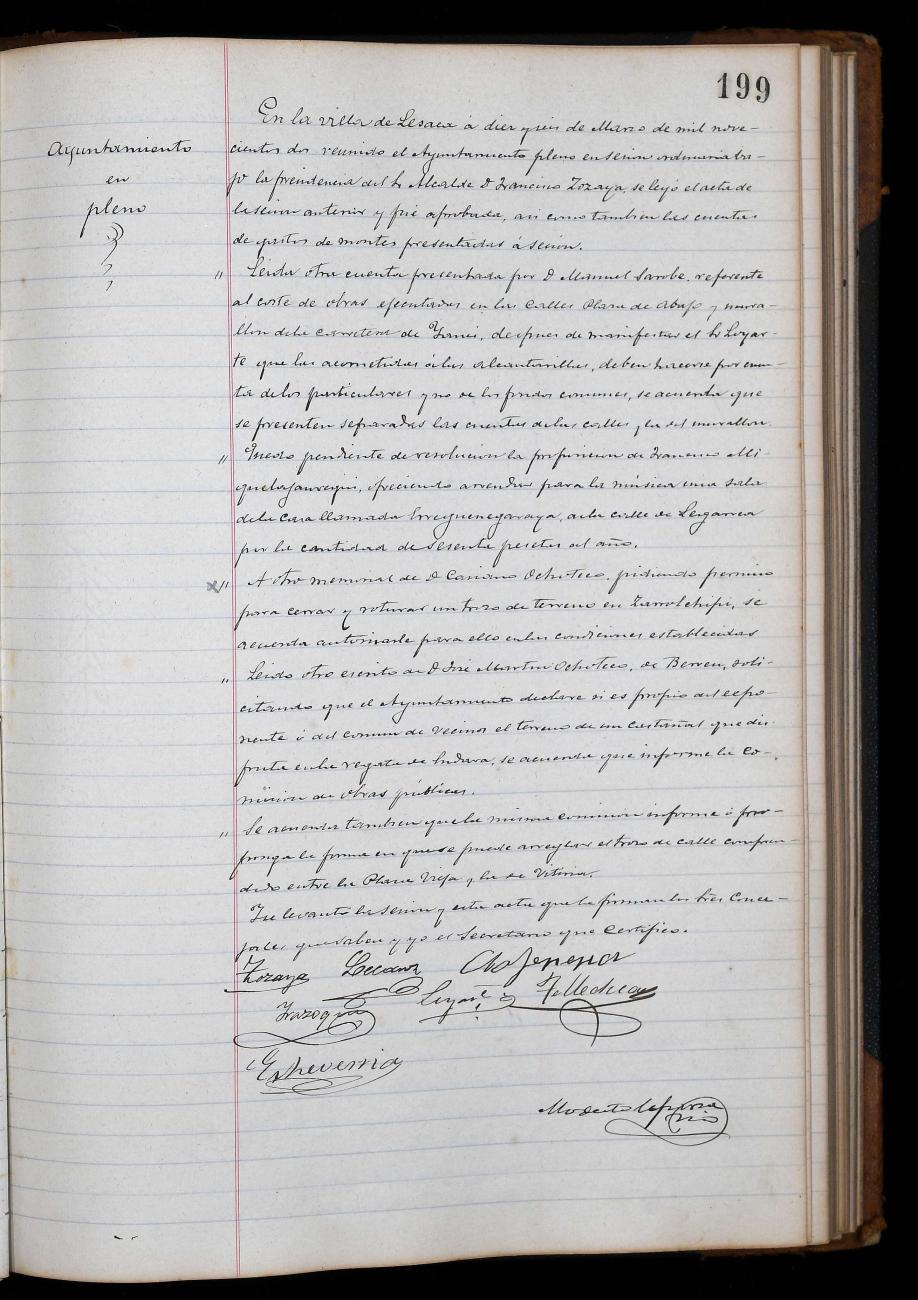 199
Ayuntamiento
en
pleno
En la villa de Lesaca á diez y seis de Marzo de mil nove-
cientos dos reunido el Ayuntamiento pleno en sesion ordinaria ba-
jo la presidencia del Sr Alcalde D Francisco Zozaya, se leyó el acta de
la sesion anterior y fué aprobada, asi como tambien las cuentas
de gastos de montes presentadas á sesion.
" Leida otra cuenta presentada por D Manuel Sarobe, referente
al coste de obras ejecutadas en las calles Plaza de Abajo y mura-
llon de la carretera de Yanci, despues de manifestar el Sr Loyar-
te que las acometidas á las alcantarillas, deben hacerse por cuen-
ta de los particulares y no de los fondos comunes, se acuerda que
se presenten separadas las cuentas de las calles y la del murallon.
" Quedo pendiente de resolucion la proposicion de Francisco Mi-
quelajauregui, ofreciendo arrendar para la música una sala
de la casa llamada Erreguenegaraya, de la calle de Legarrea
por la cantidad de sesenta pesetas al año.
x" A otro memorial de D Casiano Ochoteco, pidiendo permiso
para cerrar y roturar un trozo de terreno en Zarrolchipi, se
acuerda autorizarle para ello en las condiciones establecidas
" Leido otro escrito de D José Martin Ochoteco, de Berrea, soli-
citando que el Ayuntamiento declare si es propio del expo-
nente ó del comun de vecinos el terreno de un castañal que dis-
fruta en la regata de Endara, se acuerda que informe la co-
mision de obras públicas.
" Se acuerda tambien que la misma comision informe ó pro-
ponga la forma en que se puede arreglar el trozo de calle compren-
dido entre la Plaza Vieja y la de Vitoria.
Se levantó la sesion y esta acta que la firman los tres Conce-
jales que saben y yo el Secretario que certifico.
Zozaya Lecanz Apjenena
Irazoqui Loyarte Tellechea
Echeverria
Modesto